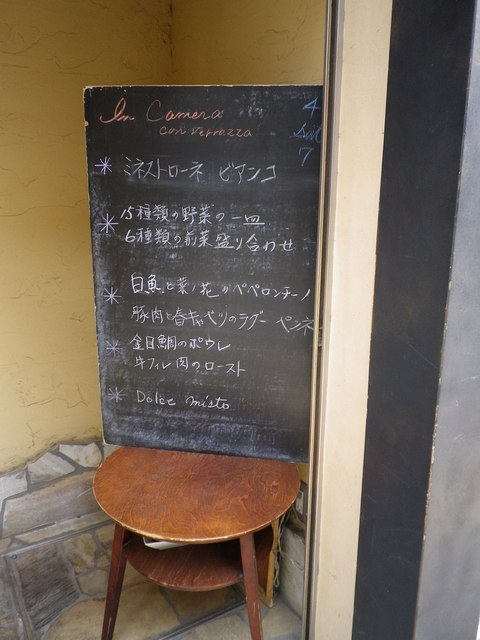 In Camera
con terrazza
4
Sat
7
* ミネストローネ ビアンコ
* 15種類の野菜の一皿
6種類の前菜盛り合わせ
* 白魚と菜ノ花のペペロンチーノ
豚肉と春キャベツのラグー ペンネ
* 金目鯛のポワレ
牛フィレ肉のロースト
* Dolce misto